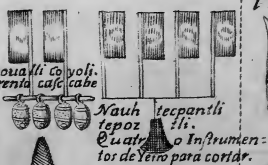 oualli coyoli.
renta casc cabe
Nauh tecpantli
tepoz tli.
Quatr o Instrumen=
tos de Yerro para cortar.